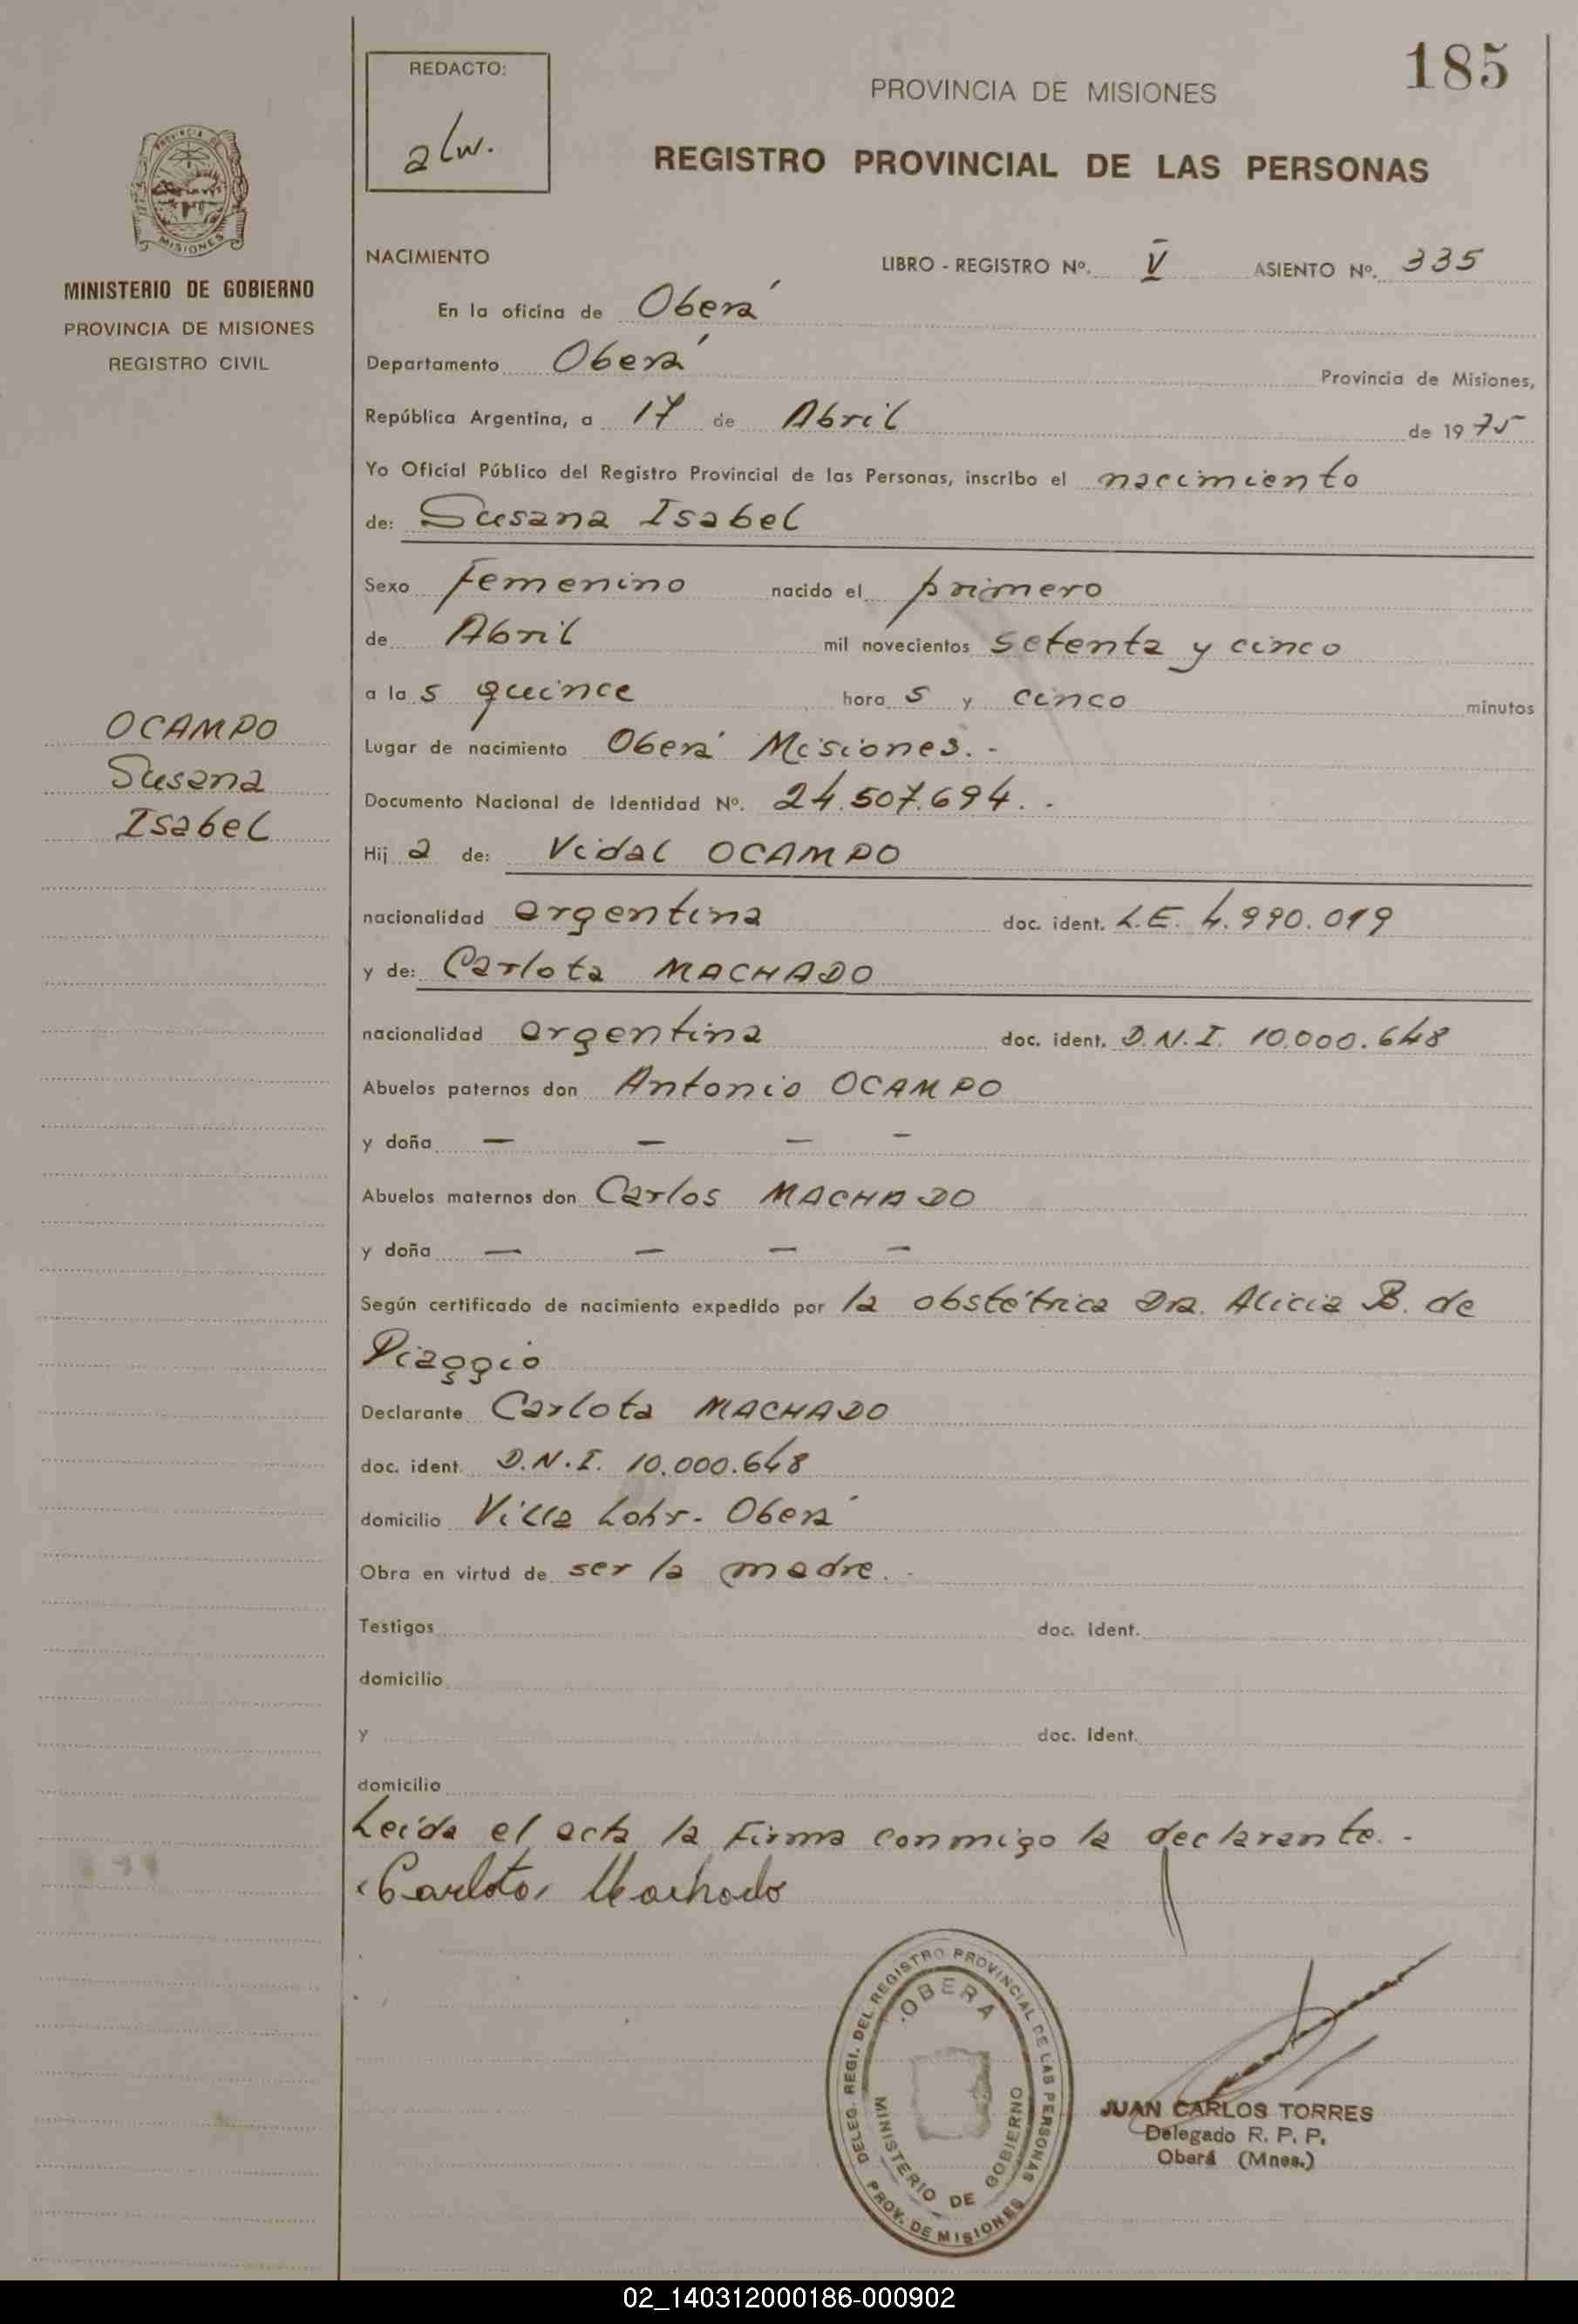 185
REDACTO:
alw.
PROVINCIA DE MISIONES
REGISTRO PROVINCIAL DE LAS PERSONAS
PROVINCIA DE
MISIONES
MINISTERIO DE GOBIERNO
PROVINCIA DE MISIONES
REGISTRO CIVIL
OCAMPO
Susana
Isabel
NACIMIENTO LIBRO - REGISTRO Nº. V ASIENTO Nº. 335
En la oficina de Oberá
Departamento Oberá Provincia de Misiones,
República Argentina, a 17 de Abril de 1975
Yo Oficial Público del Registro Provincial de las Personas, inscribo el nacimiento
de: Susana Isabel
Sexo Femenino nacido el primero
de Abril mil novecientos setenta y cinco
a las quince horas y cinco minutos
Lugar de nacimiento Oberá Misiones.-
Documento Nacional de Identidad Nº. 24.507.694..
Hija de: Vidal OCAMPO
nacionalidad argentina doc. ident. L.E. 4.990.019
y de: Carlota MACHADO
nacionalidad argentina doc. ident. D.N.I. 10.000.648
Abuelos paternos don Antonio OCAMPO
y doña — — — —
Abuelos maternos don Carlos MACHADO
y doña — — — —
Según certificado de nacimiento expedido por la obstétrica Dra. Alicia B. de
Piaggio
Declarante Carlota MACHADO
doc. ident. D.N.I. 10.000.648
domicilio Villa Lohr - Oberá
Obra en virtud de ser la madre.-
Testigos doc. ident.
domicilio
y doc. ident.
domicilio
Leída el acta la firma conmigo la declarante.-
Carlota Machado
DELEG. REGI. DEL REGISTRO PROVINCIAL DE LAS PERSONAS
OBERA
MINISTERIO DE GOBIERNO
PROV. DE MISIONES
JUAN CARLOS TORRES
Delegado R. P. P.
Oberá (Mnes.)
02_140312000186-000902